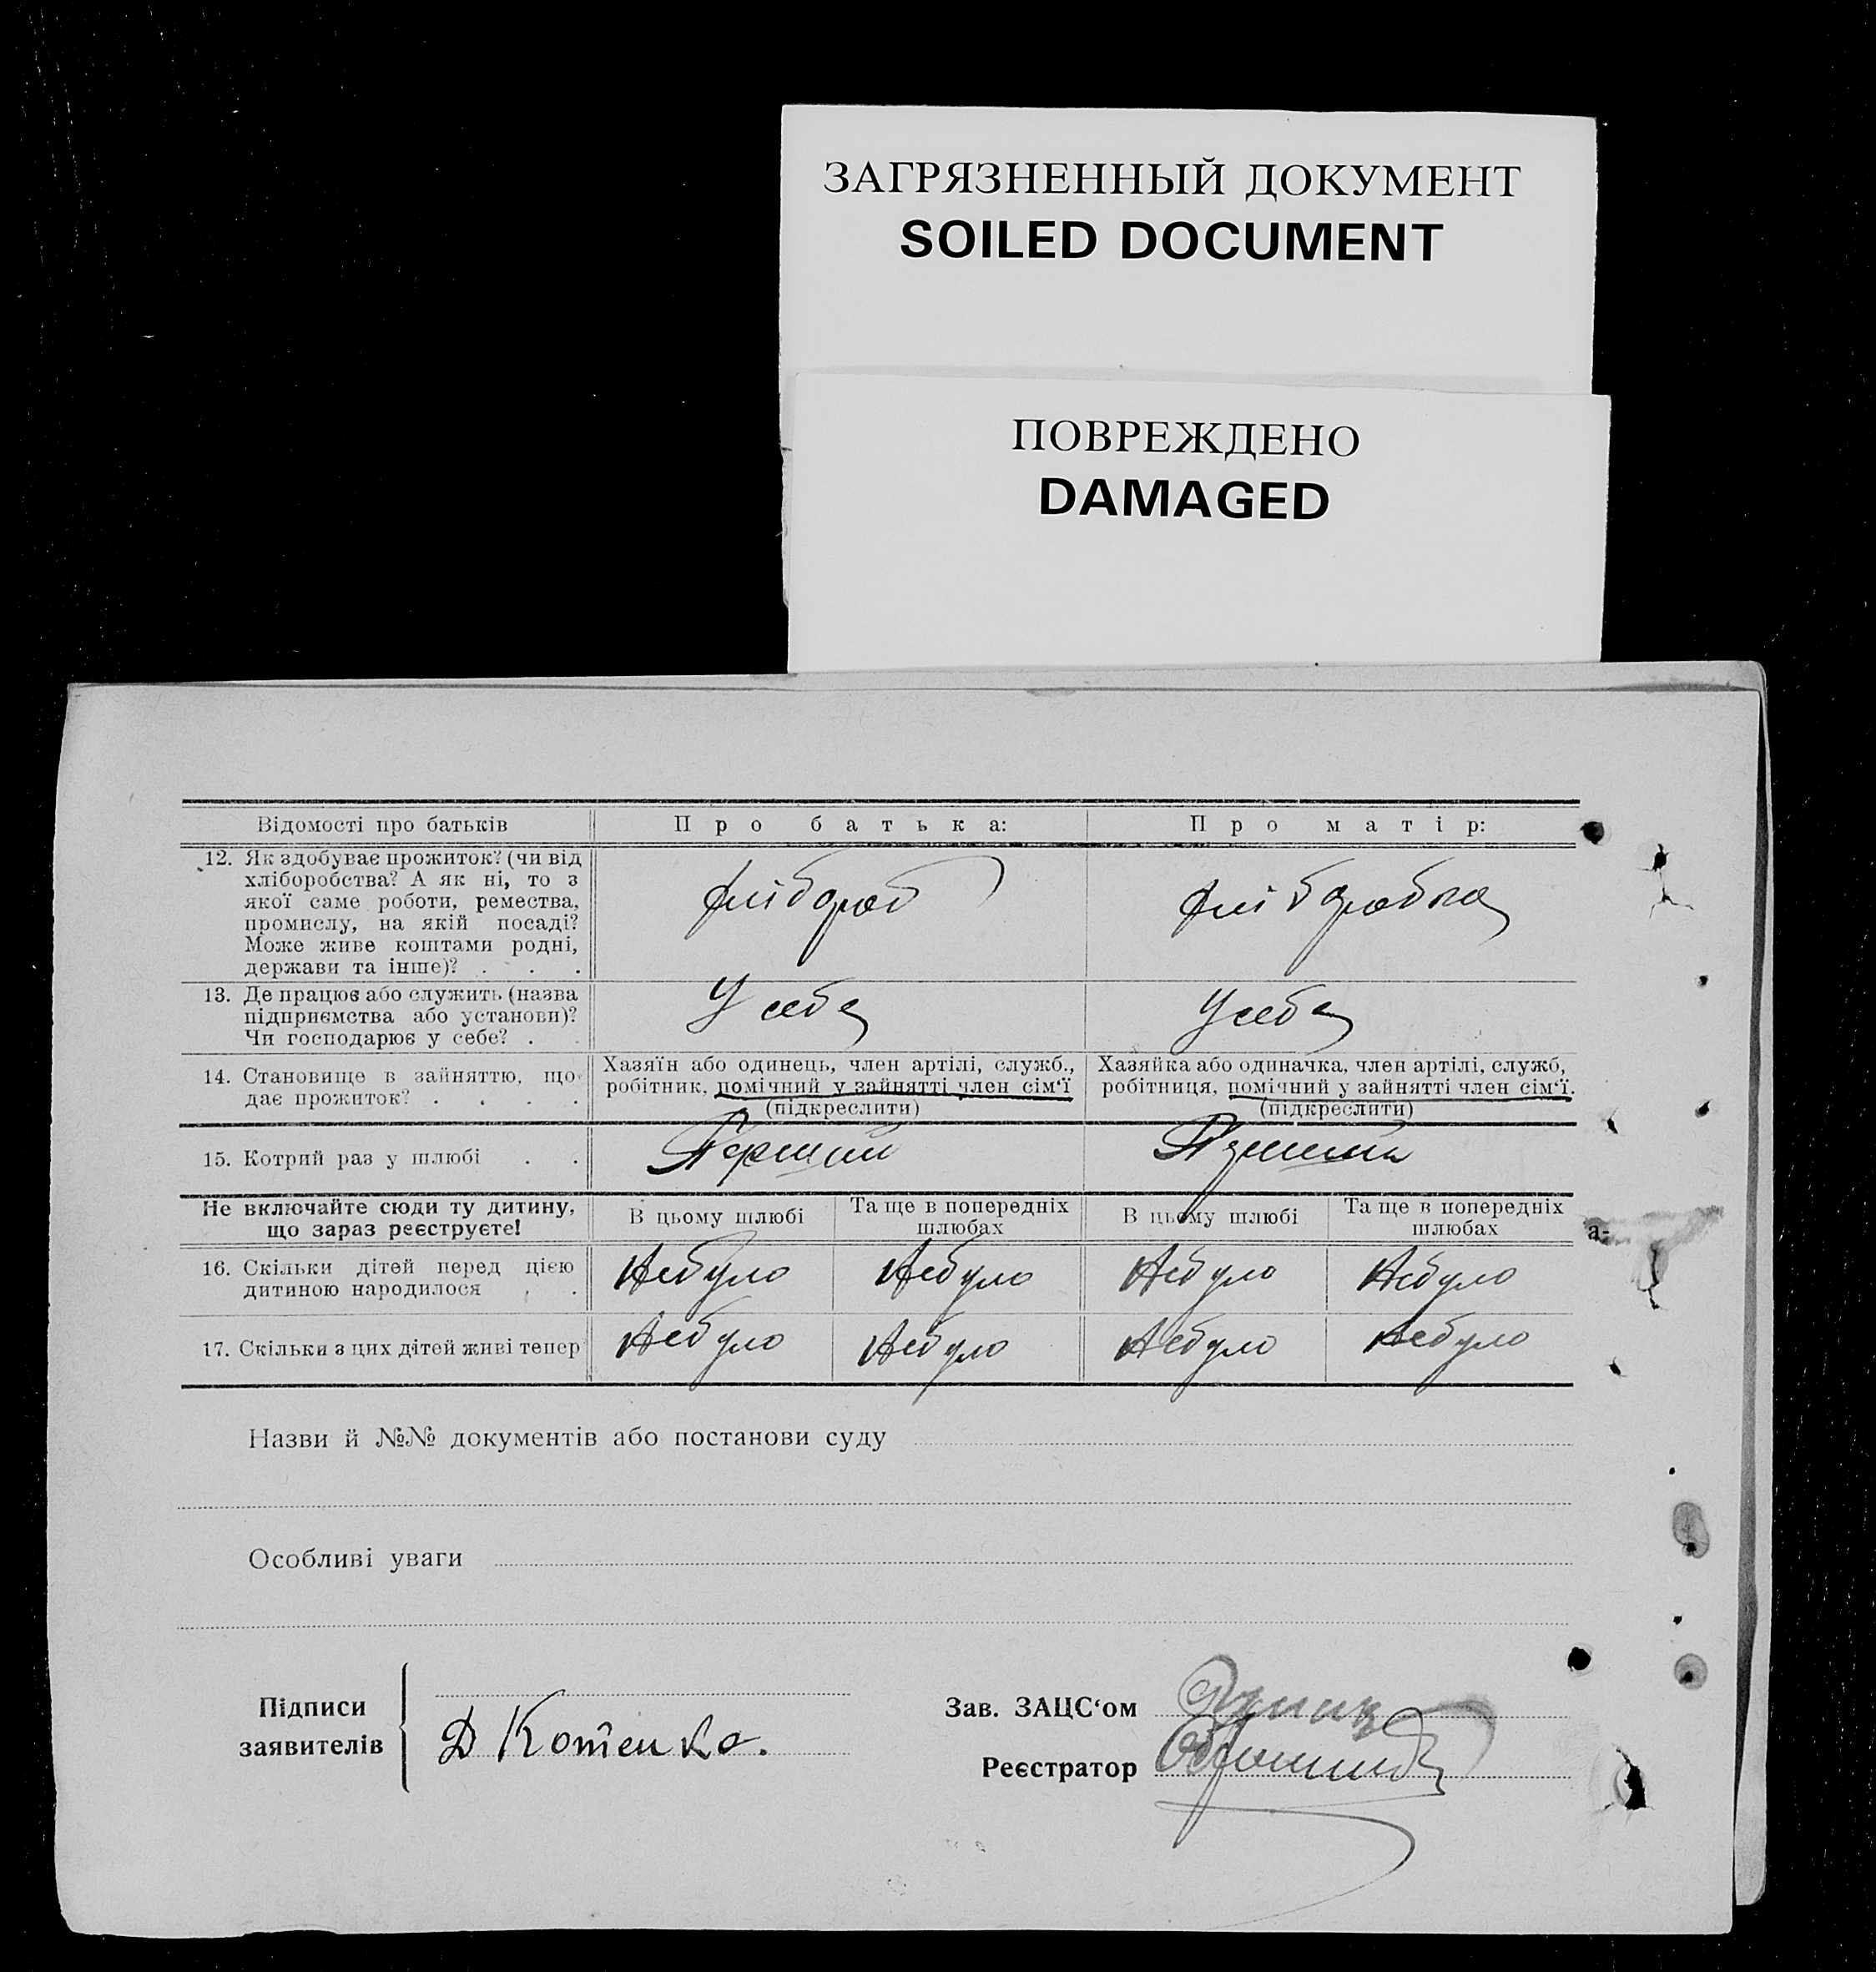 ЗАГРЯЗНЕННЫЙ ДОКУМЕНТ
SOILED DOCUMENT
ПОВРЕЖДЕНО
DAMAGED
Відомості про батьків
Про батька:
Про матір:
12. Як здобуває прожиток? (чи від
хліборобства? А як ні, то з
якої саме роботи, ремества,
промислу, на якій посаді?
Може живе коштами родні,
держави та інше)? . . .
хлібороб
хліборобка
13. Де працює або служить (назва
підприємства або установи)?
Чи господарює у себе? . .
У себе
У себе
14. Становище в зайняттю, що
дає прожиток? . . . .
Хазяїн або одинець, член артілі, служб.,
робітник, помічний у зайнятті член сім‘ї
(підкреслити)
Хазяйка або одиначка, член артілі, служб,
робітниця, помічний у зайнятті член сім‘ї.
(підкреслити)
15. Котрий раз у шлюбі . .
Перший
Перший
Не включайте сюди ту дитину,
що зараз реєструєте!
В цьому шлюбі
Та ще в попередніх
шлюбах
В цьому шлюбі
Та ще в попередніх
шлюбах
16. Скільки дітей перед цією
дитиною народилося . .
Небуло
Небуло
Небуло
Небуло
17. Скільки з цих дітей живі тепер
Небуло
Небуло
Небуло
Небуло
а-
Назви й №№ документів або постанови суду
Особливі уваги
Підписи
заявителів
Д Котенко.
Зав. ЗАЦС‘ом
Реєстратор